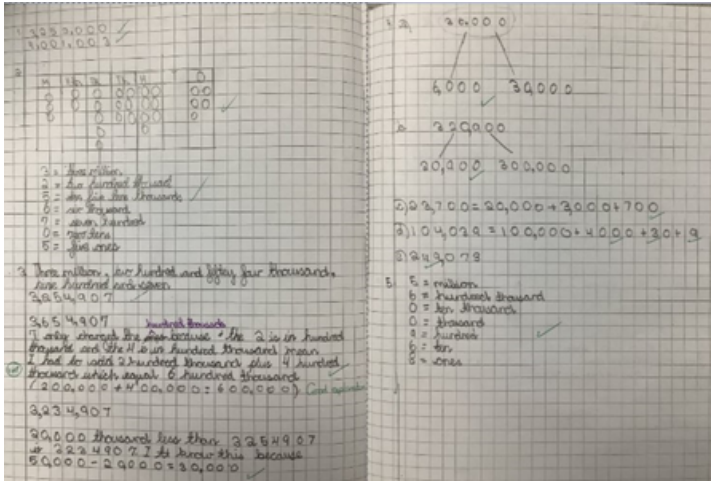 1. 3,222,000
1,001,003
2.
M
H
O
3 = three million
2 = two hundred thousand
5 = ten five ten thousands
6 = six thousand
7 = seven hundred
0 = zero tens
5 = five ones
3 Three million, two hundred and fifty four thousand,
nine hundred and seven
3,254,907
3,654,907 hundred thousands
I only changed the because the 2 is in hundred
thousand and the 4 is in hundred thousand mean
I had to add 2 hundred thousand plus 4 hundred
thousand which equal 6 hundred thousand
(200,000 + 400,000 = 600,000) Good
3,234,907
20,000 thousand less than 3254907
is 3234907. I know this because
50,000 - 20000 = 30,000
36,000
6,000 30,000
b 320,000
20,000 300,000
c) 23,700 = 20,000 + 3,000 + 700
d) 104,039 = 100,000 + 4000 + 30 + 9
243,079
5 5 = million
6 = hundred thousand
0 = ten thousand
0 = thousand
= hundred
6 = ten
8 = ones